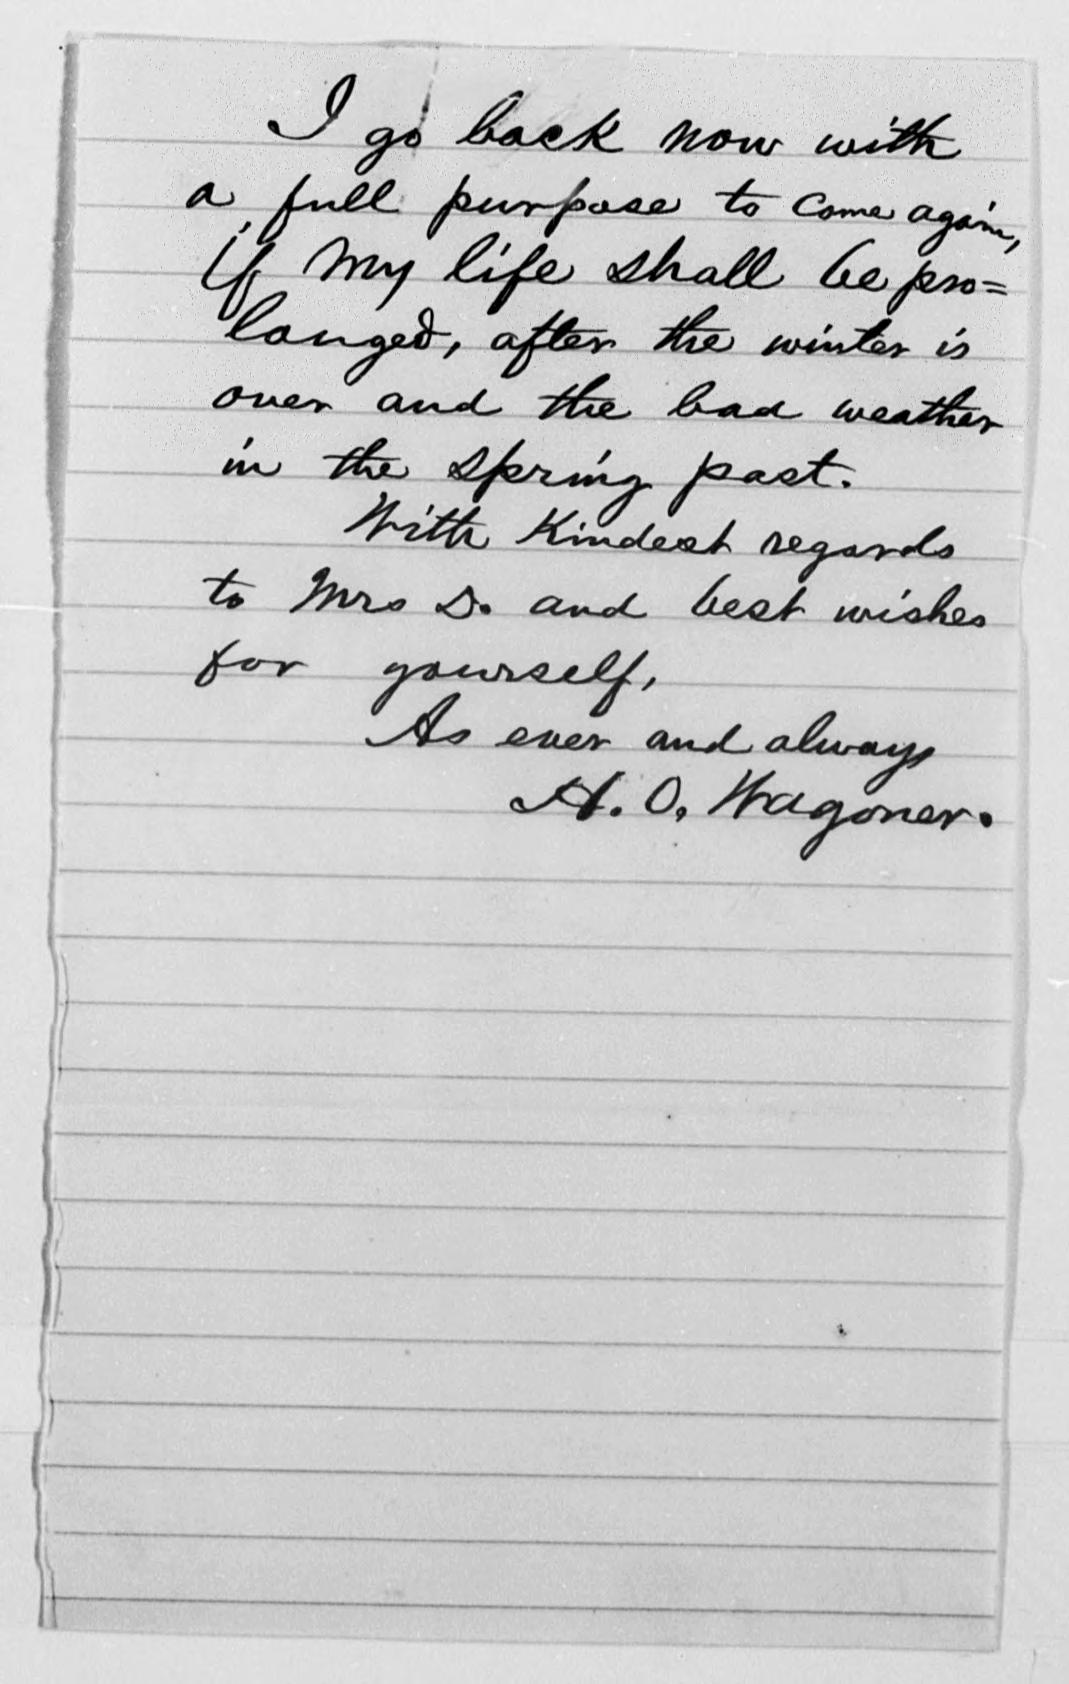 I go back now with
a full purpose to come again,
if my life shall be pro=
longed, after the winter is
over and the bad weather
in the spring past.
With Kindest regards
to Mrs D. and best wishes
for yourself,
As ever and always
H. O. Wagoner.